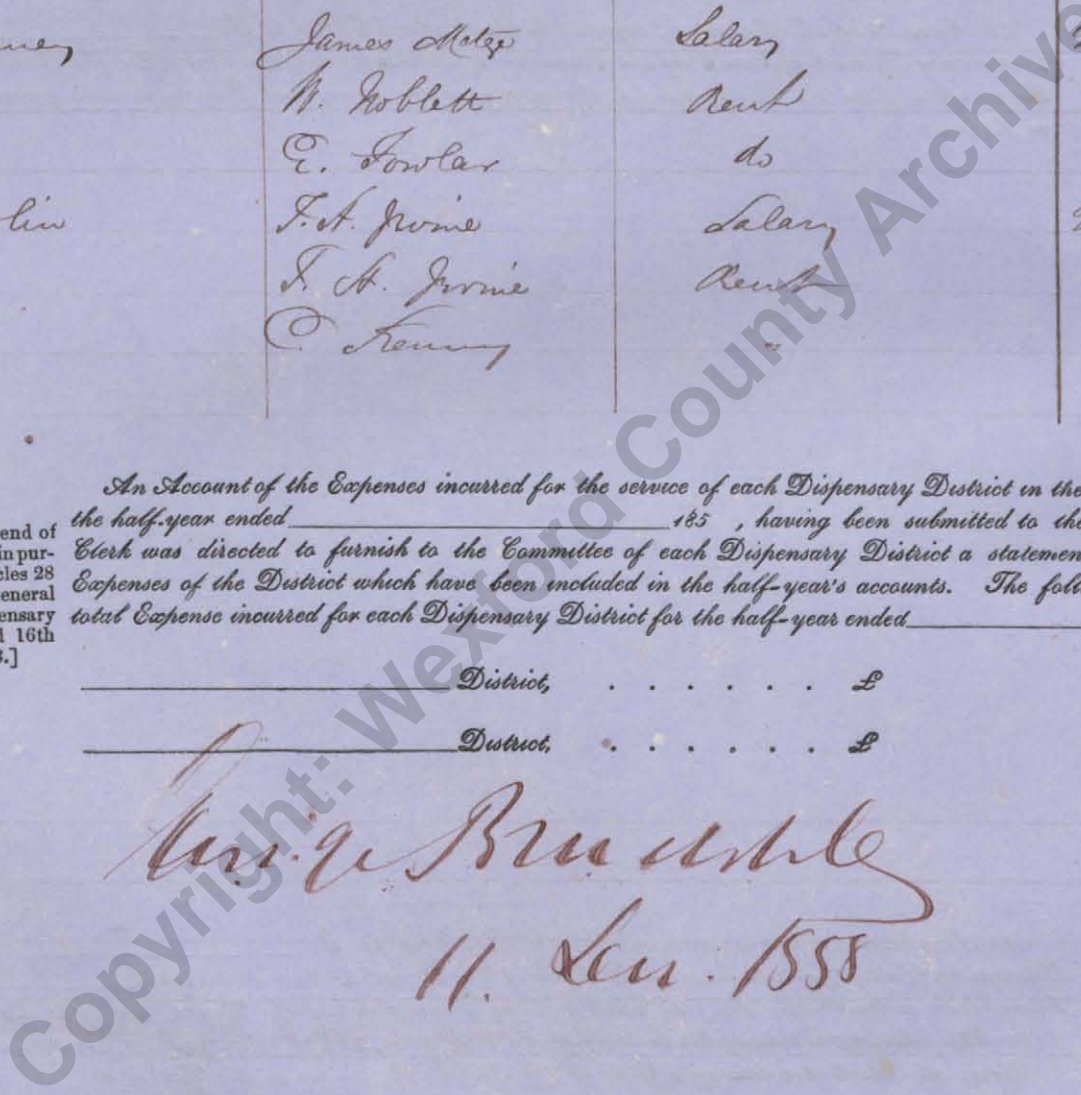 ney James Metge Salary
W. Noblett Rent
E. Fowlar do
lin F. A. Irvine Salary
F. A. Irvine Rent
C. Kenny "
An Account of the Expenses incurred for the service of each Dispensary District in the
the half-year ended 185 , having been submitted to the
end of
Clerk was directed to furnish to the Committee of each Dispensary District a statement
in pur-
Expenses of the District which have been included in the half-year's accounts. The foll
cles 28
total Expense incurred for each Dispensary District for the half-year ended
eneral
ensary
d 16th
.]
District, . . . . . . £
District, . . . . . . £
11. 1858
Copyright: Wexford County Archive